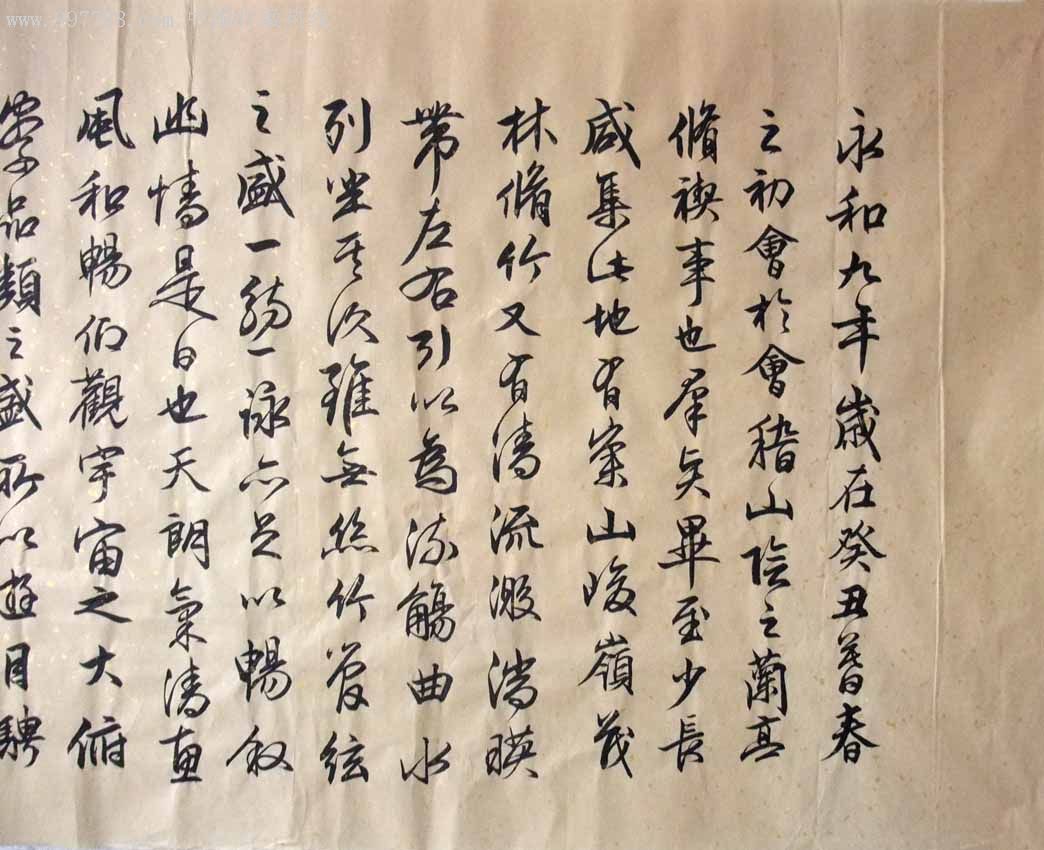 永和九年歲在癸丑暮春
之初會於會稽山陰之蘭亭
脩禊事也羣賢畢至少長
咸集此地有崇山峻嶺茂
林脩竹又有清流激湍暎
帶左右引以為流觴曲水
列坐其次雖無絲竹管絃
之盛一觴一詠亦足以暢敘
幽情是日也天朗氣清惠
風和暢仰觀宇宙之大俯
察品類之盛所以遊目騁
www.997788.com 中国收藏热线